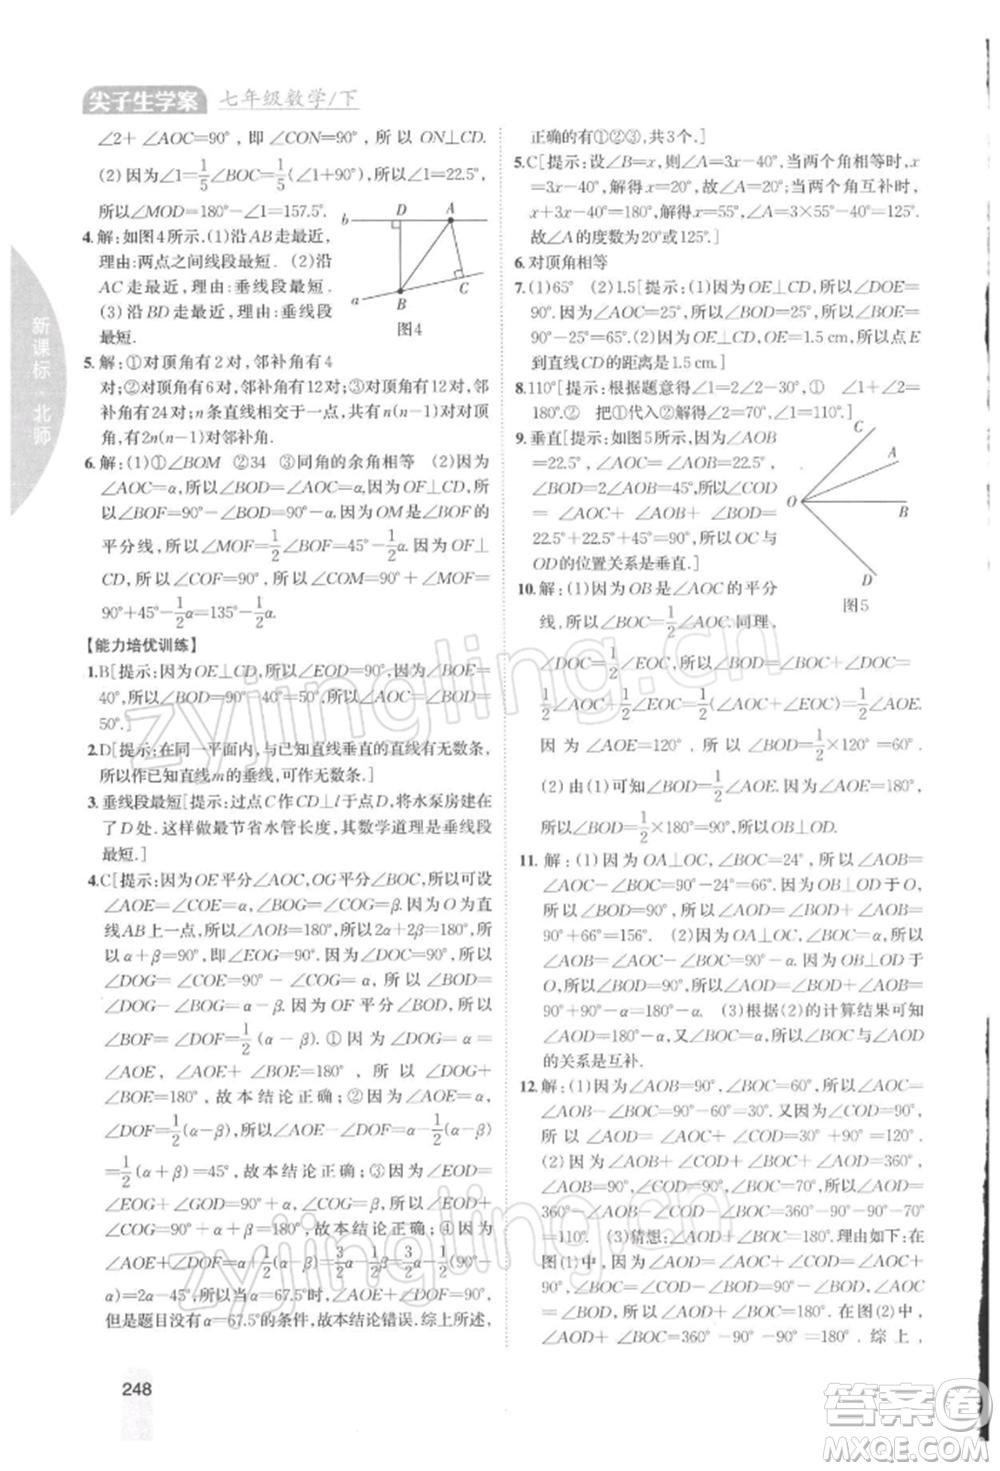 尖子生学案 七年级数学/下
新课标·北师
∠2+∠AOC=90°,即∠CON=90°,所以ON⊥CD.
(2)因为∠1=1/5∠BOC=1/5(∠1+90°),所以∠1=22.5°,
所以∠MOD=180°-∠1=157.5°.
4.解:如图4所示.(1)沿AB走最近,
理由:两点之间线段最短. (2)沿
AC走最近,理由:垂线段最短.
(3)沿BD走最近,理由:垂线段
最短.
b D A
a B C
图4
5.解:①对顶角有2对,邻补角有4
对;②对顶角有6对,邻补角有12对;③对顶角有12对,
邻补角有24对;n条直线相交于一点,共有n(n-1)对对顶
角,共有2n(n-1)对邻补角.
6.解:(1)①∠BOM ②34 ③同角的余角相等 (2)因为
∠AOC=α,所以∠BOD=∠AOC=α.因为OF⊥CD,所
以∠BOF=90°-∠BOD=90°-α.因为OM是∠BOF的
平分线,所以∠MOF=1/2∠BOF=45°-1/2α.因为OF⊥
CD,所以∠COF=90°,所以∠COM=∠COF+∠MOF=
90°+45°-1/2α=135°-1/2α.
【能力培优训练】
1.B[提示:因为OE⊥CD,所以∠EOD=90°.因为∠BOE=
40°,所以∠BOD=90°-40°=50°,所以∠AOC=∠BOD=
50°.]
2.D[提示:在同一平面内,与已知直线垂直的直线有无数条,
所以作已知直线m的垂线,可作无数条.]
3.垂线段最短[提示:过点C作CD⊥l于点D,将水泵房建在
了D处.这样做最节省水管长度,其数学道理是垂线段
最短.]
4.C[提示:因为OE平分∠AOC,OG平分∠BOC,所以可设
∠AOE=∠COE=α,∠BOG=∠COG=β.因为O为直
线AB上一点,所以∠AOB=180°,所以2α+2β=180°,所以
α+β=90°,即∠EOG=90°.因为∠DOG=∠COE=α,所以
∠DOG=∠AOE=∠COE=α,所以∠BOD=
∠DOG-∠BOG=α-β.因为OF平分∠BOD,所以
∠BOF=∠DOF=1/2(α-β).①因为∠DOG=∠AOE=
α,所以∠AOE+∠DOB+∠BOE=∠DOG+
∠BOE=180°,故本结论正确;②因为∠AOE=α,
∠DOF=1/2(α-β),所以∠AOE-∠DOF=α-1/2(α-β)
=1/2(α+β)=45°,故本结论正确;③因为∠EOD=
∠EOG+∠GOD=90°+α,∠COG=β,所以∠EOD+
∠COG=90°+α+β=180°,故本结论正确;④因为
∠AOE+∠DOF=α+1/2(α-β)=3/2α-1/2β=3/2α-1/2(90°-
α)=2α-45°,所以当α=67.5°时,∠AOE+∠DOF=90°,
但是题目没有α=67.5°的条件,故本结论错误.综上所述,
正确的有①②③,共3个.]
5.C[提示:设∠B=x,则∠A=3x-40°,当两个角相等时,x=
3x-40°,解得x=20°,故∠A=20°;当两个角互补时,
x+3x-40°=180°,解得x=55°,故∠A=3x-40°=125°.
故∠A的度数为20°或125°.]
6.对顶角相等
7.(1)65° (2)1.5[提示:(1)因为OE⊥CD,所以∠DOE=
90°.因为∠BOD=25°,所以∠BOD=25°,所以∠BOE=
90°-25°=65°.(2)因为OE⊥CD,OE=1.5 cm,所以点E
到直线CD的距离是1.5 cm.]
8.110°[提示:根据题意得∠2=2∠1-30°①,∠1+∠2=
180°.② 把①代入②得∠2=70°,∠1=110°.]
9.垂直[提示:如图5所示,因为∠AOB=
22.5°,所以∠AOC=∠AOB=22.5°,
∠BOD=2∠AOB=45°,所以∠COD=
∠AOC+∠AOB+∠BOD=
22.5°+22.5°+45°=90°,所以OC与
OD的位置关系是垂直.]
C
A
O B
D
图5
10.解:(1)因为OB是∠AOC的平分
线,所以∠BOC=1/2∠AOC.同理,
∠DOC=1/2∠EOC,所以∠BOD=∠BOC+∠DOC=
1/2∠AOC+1/2∠EOC=1/2(∠AOC+∠EOC)=1/2∠AOE.
因为∠AOE=120°,所以∠BOD=1/2×120°=60°.
(2)由(1)可知∠BOD=1/2∠AOE.因为∠AOE=180°,
所以∠BOD=1/2×180°=90°,所以OB⊥OD.
11.解:(1)因为OA⊥OC,∠BOC=24°,所以∠AOB=
∠AOC-∠BOC=90°-24°=66°.因为OB⊥OD于O,
所以∠BOD=90°,所以∠AOD=∠BOD+∠AOB=
90°+66°=156°. (2)因为OA⊥OC,∠BOC=α,所以
∠AOB=∠AOC-∠BOC=90°-α.因为OB⊥OD于
O,所以∠BOD=90°,所以∠AOD=∠BOD+∠AOB=
90°+90°-α=180°-α. (3)根据(2)的计算结果可知
∠AOD=180°-α,又∠BOC=α,所以∠BOC与∠AOD
的关系是互补.
12.解:(1)因为∠AOB=90°,∠BOC=60°,所以∠AOC=
∠AOB-∠BOC=90°-60°=30°.又因为∠COD=90°,
所以∠AOD=∠AOC+∠COD=30°+90°=120°.
(2)因为∠AOB+∠COD+∠BOC+∠AOD=360°,
∠AOB=90°,∠COD=90°,∠BOC=70°,所以∠AOD=
360°-∠AOB-∠COD-∠BOC=360°-90°-90°-70°
=110°. (3)猜想:∠AOD+∠BOC=180°.理由如下:
因为∠AOD=∠AOB+∠BOD=90°+
∠BOD,∠BOC=∠COD-∠BOD=90°-
∠BOD,所以∠AOD+∠BOC=180°.在图(2)中,
∠AOD+∠BOC=360°-90°-90°=180°.综上,
∠AOD+∠BOC=180°.
248
zyjingling.cn
zyjingling.cn
答案圈
MXQE.COM